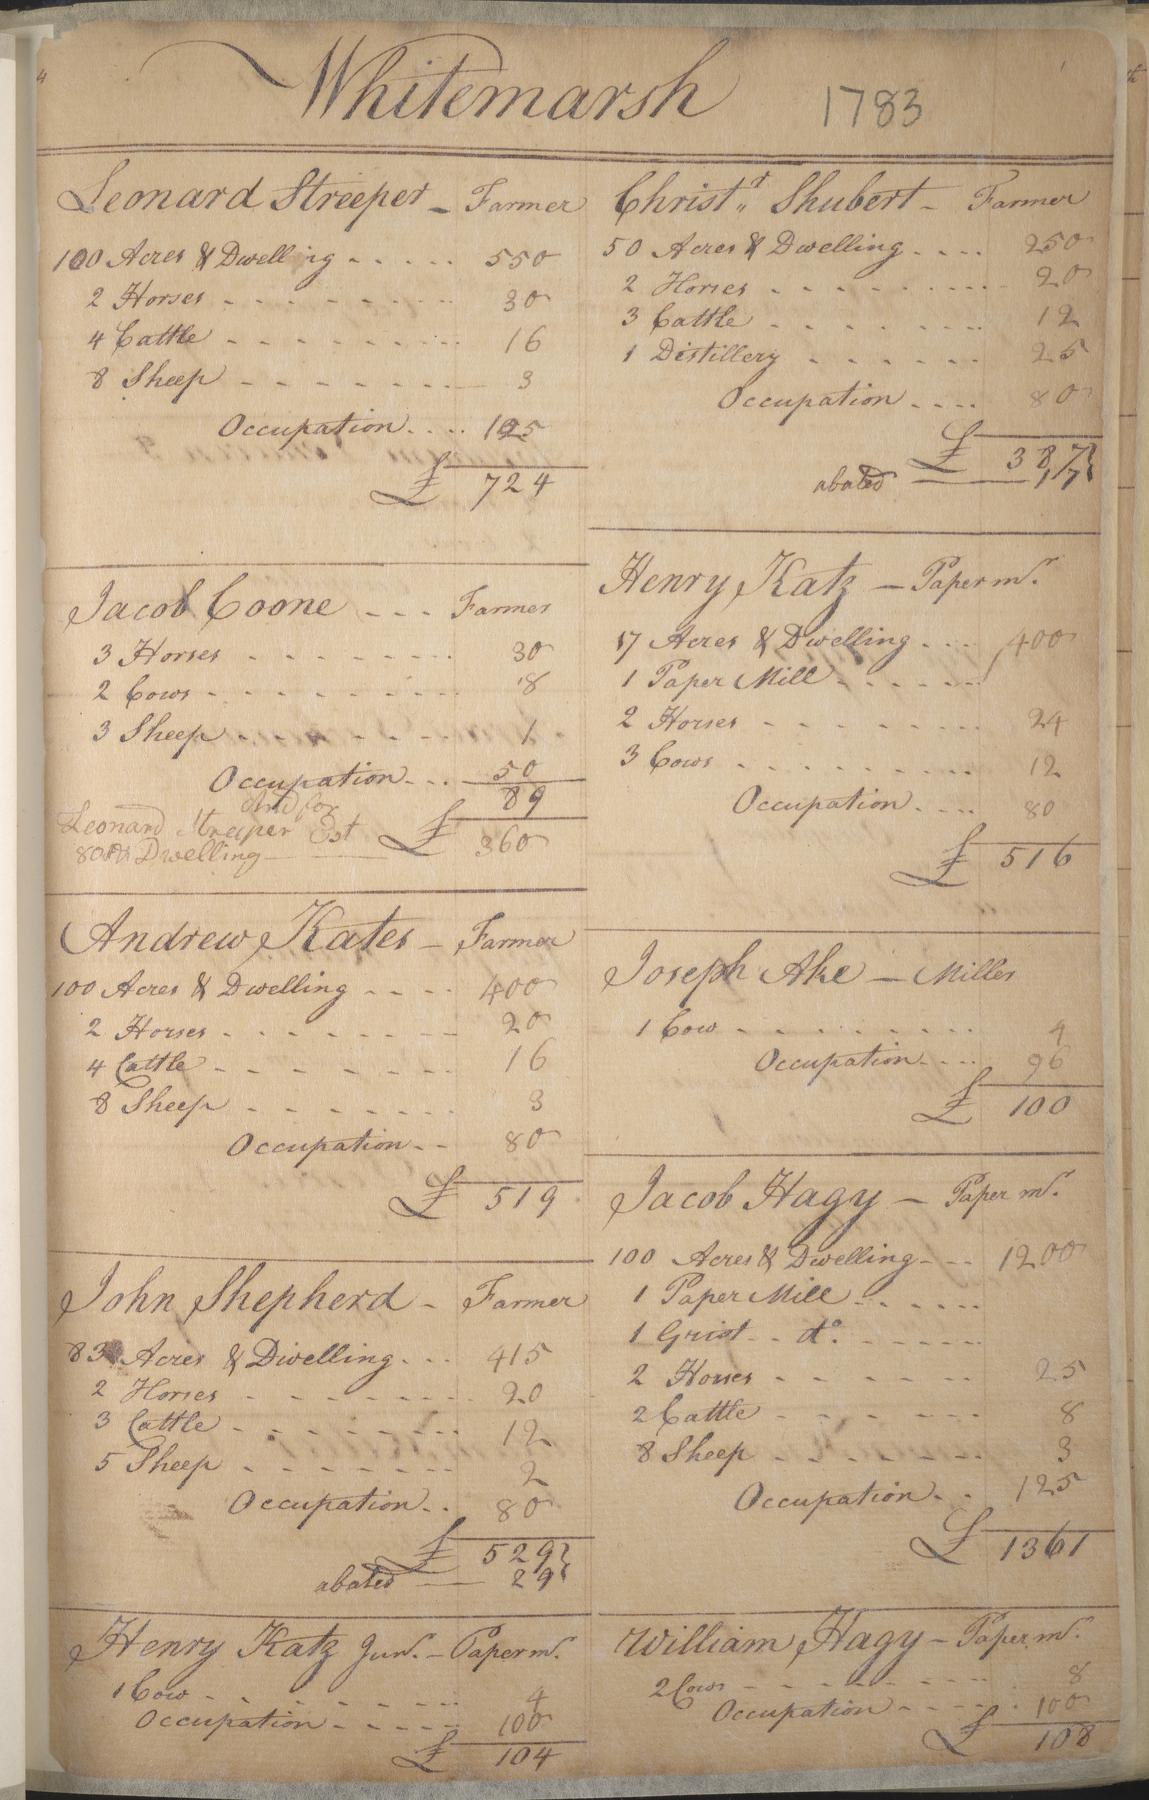 Whitemarsh 1783
4
Leonard Streeper - Farmer
100 Acres & Dwelling 550
2 Horses 30
4 Cattle 16
8 Sheep 3
Occupation 125
£ 724
Jacob Coone Farmer
3 Horses 30
2 Cows 8
3 Sheep 1
Occupation 50
89
And for
Leonard Streeper Est £ 360
80 A & Dwelling
Andrew Kates - Farmer
100 Acres & Dwelling 400
2 Horses 20
4 Cattle 16
8 Sheep 3
Occupation 80
£ 519
John Shepherd - Farmer
83 Acres & Dwelling 415
2 Horses 20
3 Cattle 12
5 Sheep 2
Occupation 80
£ 529
abated 29
Henry Katz Junr. - Paper mr.
1 Cow 4
Occupation 100
£ 104
Christr. Shubert - Farmer
50 Acres & Dwelling 250
2 Horses 20
3 Cattle 12
1 Distillery 25
Occupation 80
£ 387
abated 17
Henry Katz - Paper mr.
17 Acres & Dwelling 400
1 Paper Mill
2 Horses 24
3 Cows 12
Occupation 80
£ 516
Joseph Ake - Miller
1 Cow 4
Occupation 96
£ 100
Jacob Hagy - Paper mr.
100 Acres & Dwelling 1200
1 Paper Mill
1 Grist do.
2 Horses 25
2 Cattle 8
8 Sheep 3
Occupation 125
£ 1361
William Hagy - Paper mr.
2 Cows 8
Occupation 100
£ 108